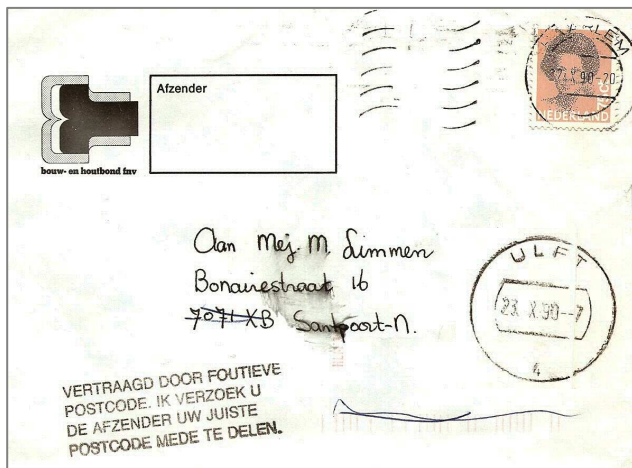 Afzender
bouw- en houtbond fnv
NEDERLAND
Aan Mej. M. Limmen
Bonairestraat 16
7071 XB Santpoort-N.
ULFT
23.X.90--7
4
VERTRAAGD DOOR FOUTIEVE
POSTCODE. IK VERZOEK U
DE AFZENDER UW JUISTE
POSTCODE MEDE TE DELEN.